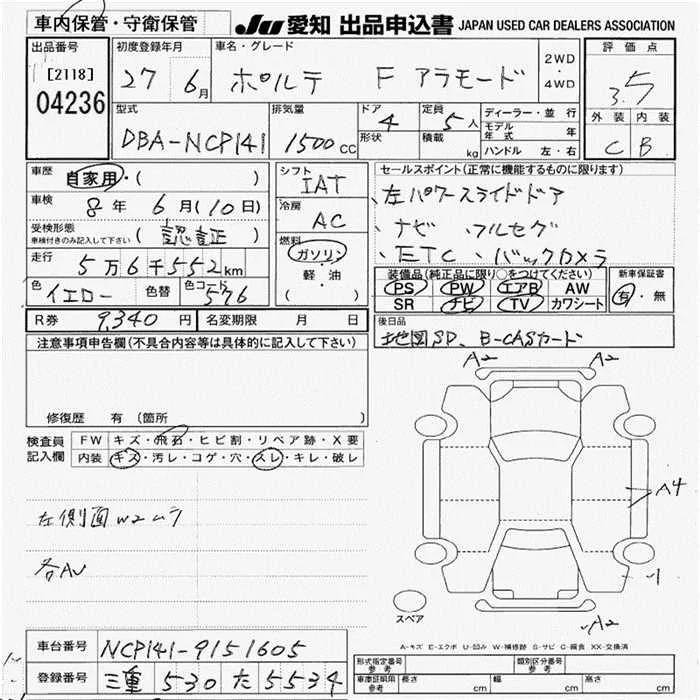 車内保管・守衛保管
JU 愛知 出品申込書 JAPAN USED CAR DEALERS ASSOCIATION
出品番号
[2118]
04236
初度登録年月
27 6月
車名・グレード
ポルテ F アラモード
2WD
4WD
評価点
3.5
外装 内装
C B
型式
DBA-NCP141
排気量
1500cc
ドア
4
形状
定員
5人
積載
kg
ディーラー・並行
モデル年式 年
ハンドル 左・右
車歴
自家用・( )
車検
8年 6月(10日)
受検形態
車検付きのみ記入して下さい
(認証)
走行
5万6千552km
色
イエロー
色替
色コード
576
シフト
IAT
冷房
AC
燃料
ガソリン
軽・油
( )
セールスポイント(正常に機能するものに限ります)
、左パワースライドドア
、ナビ 、フルセグ
、ETC 、バックカメラ
装備品(純正品に限り○をつけてください)
PS PW エアB AW
SR ナビ TV カワシート
新車保証書
有・無
R券 9,340円
名変期限 月 日
後日品
地図SD、B-CASカード
注意事項申告欄(不具合内容等は具体的に記入して下さい)
修復歴 有(箇所
検査員記入欄
FW キズ・飛石・ヒビ割・リペア跡・X要
内装 キズ・汚レ・コゲ・穴・スレ・キレ・破レ
左側面W2ムラ
各AU
A2 A2
A4
A2
スペア
A-キズ E-エクボ U-凹み W-補修跡 S-サビ C-腐食 XX-交換済
車台番号 NCP141-9151605
登録番号 三重 530 た 5534
形式指定番号
参考
類別区分番号
参考
車庫証明用
参考
長さ cm 幅 cm 高さ cm